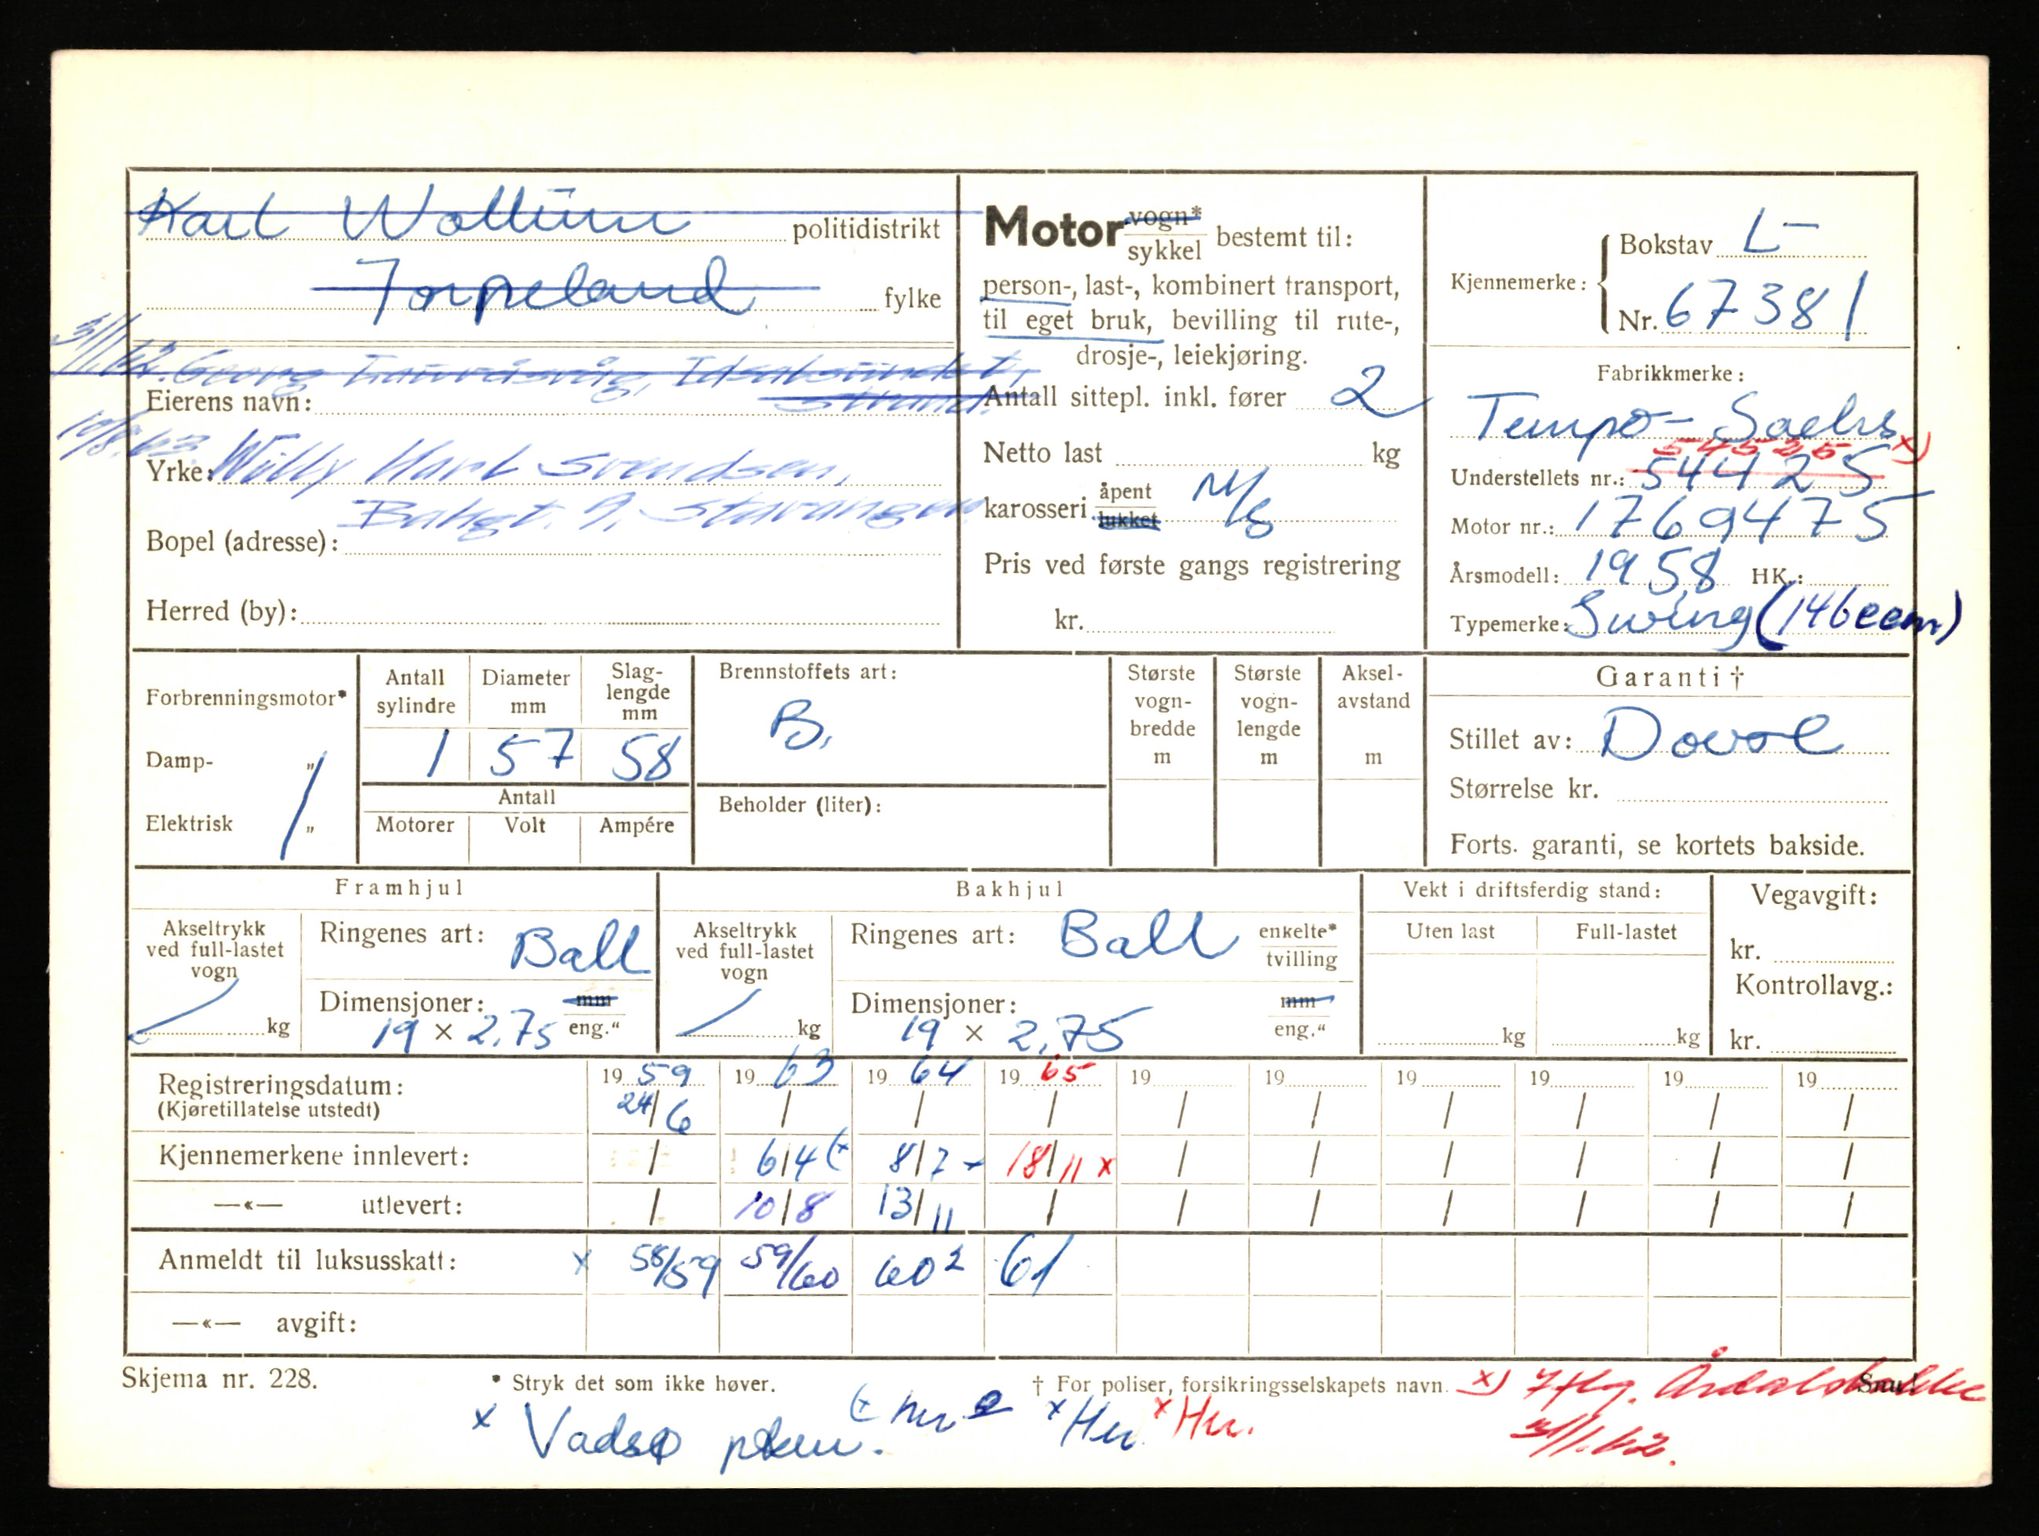 Karl Wollum politidistrikt
Jørpeland fylke
31/1.62. Georg
Eierens navn:
10/8.63. Willy Karl Svendsen,
Yrke:
Bakgt. 9, Stavanger
Bopel (adresse):
Herred (by):
Motor vogn*
sykkel bestemt til:
person-, last-, kombinert transport,
til eget bruk, bevilling til rute-,
drosje-, leiekjøring.
Antall sittepl. inkl. fører 2
Netto last kg
karosseri åpent
lukket M/s
Pris ved første gangs registrering
kr.
Kjennemerke: Bokstav L-
Nr. 67381
Fabrikkmerke:
Tempo-Sachs
54525 x)
Understellets nr.: 544425
Motor nr.: 1769475
Årsmodell: 1958 HK.:
Typemerke: Swing (146ccm)
Forbrenningsmotor*
Damp- „
Elektrisk „
Antall sylindre 1
Diameter mm 57
Slag-lengde mm 58
Antall
Motorer Volt Ampére
Brennstoffets art:
B.
Beholder (liter):
Største vogn-bredde m
Største vogn-lengde m
Aksel-avstand m
Garanti †
Stillet av: Dovre
Størrelse kr.
Forts. garanti, se kortets bakside.
Framhjul
Akseltrykk ved full-lastet vogn kg
Ringenes art: Ball
Dimensjoner: mm
19 × 2.75 eng."
Bakhjul
Akseltrykk ved full-lastet vogn kg
Ringenes art: Ball enkelte*
tvilling
Dimensjoner: mm
19 × 2,75 eng."
Vekt i driftsferdig stand:
Uten last Full-lastet
kg kg
Vegavgift:
kr.
Kontrollavg.:
kr.
Registreringsdatum: 1959 1963 1964 1965 19 19 19 19 19 19
(Kjøretillatelse utstedt) 24/6 / / / / / / / / /
Kjennemerkene innlevert: / 6/4 (x 8/7 x 18/11 x / / / / / /
—«— utlevert: / 10/8 13/11 / / / / / / /
Anmeldt til luksusskatt: x 58/59 59/60 60² 61
—«— avgift:
Skjema nr. 228. * Stryk det som ikke høver. † For poliser, forsikringsselskapets navn. Snu!
x) Årdalsbakke
31/1.62.
x Vadsø (x x Hu x Hu.